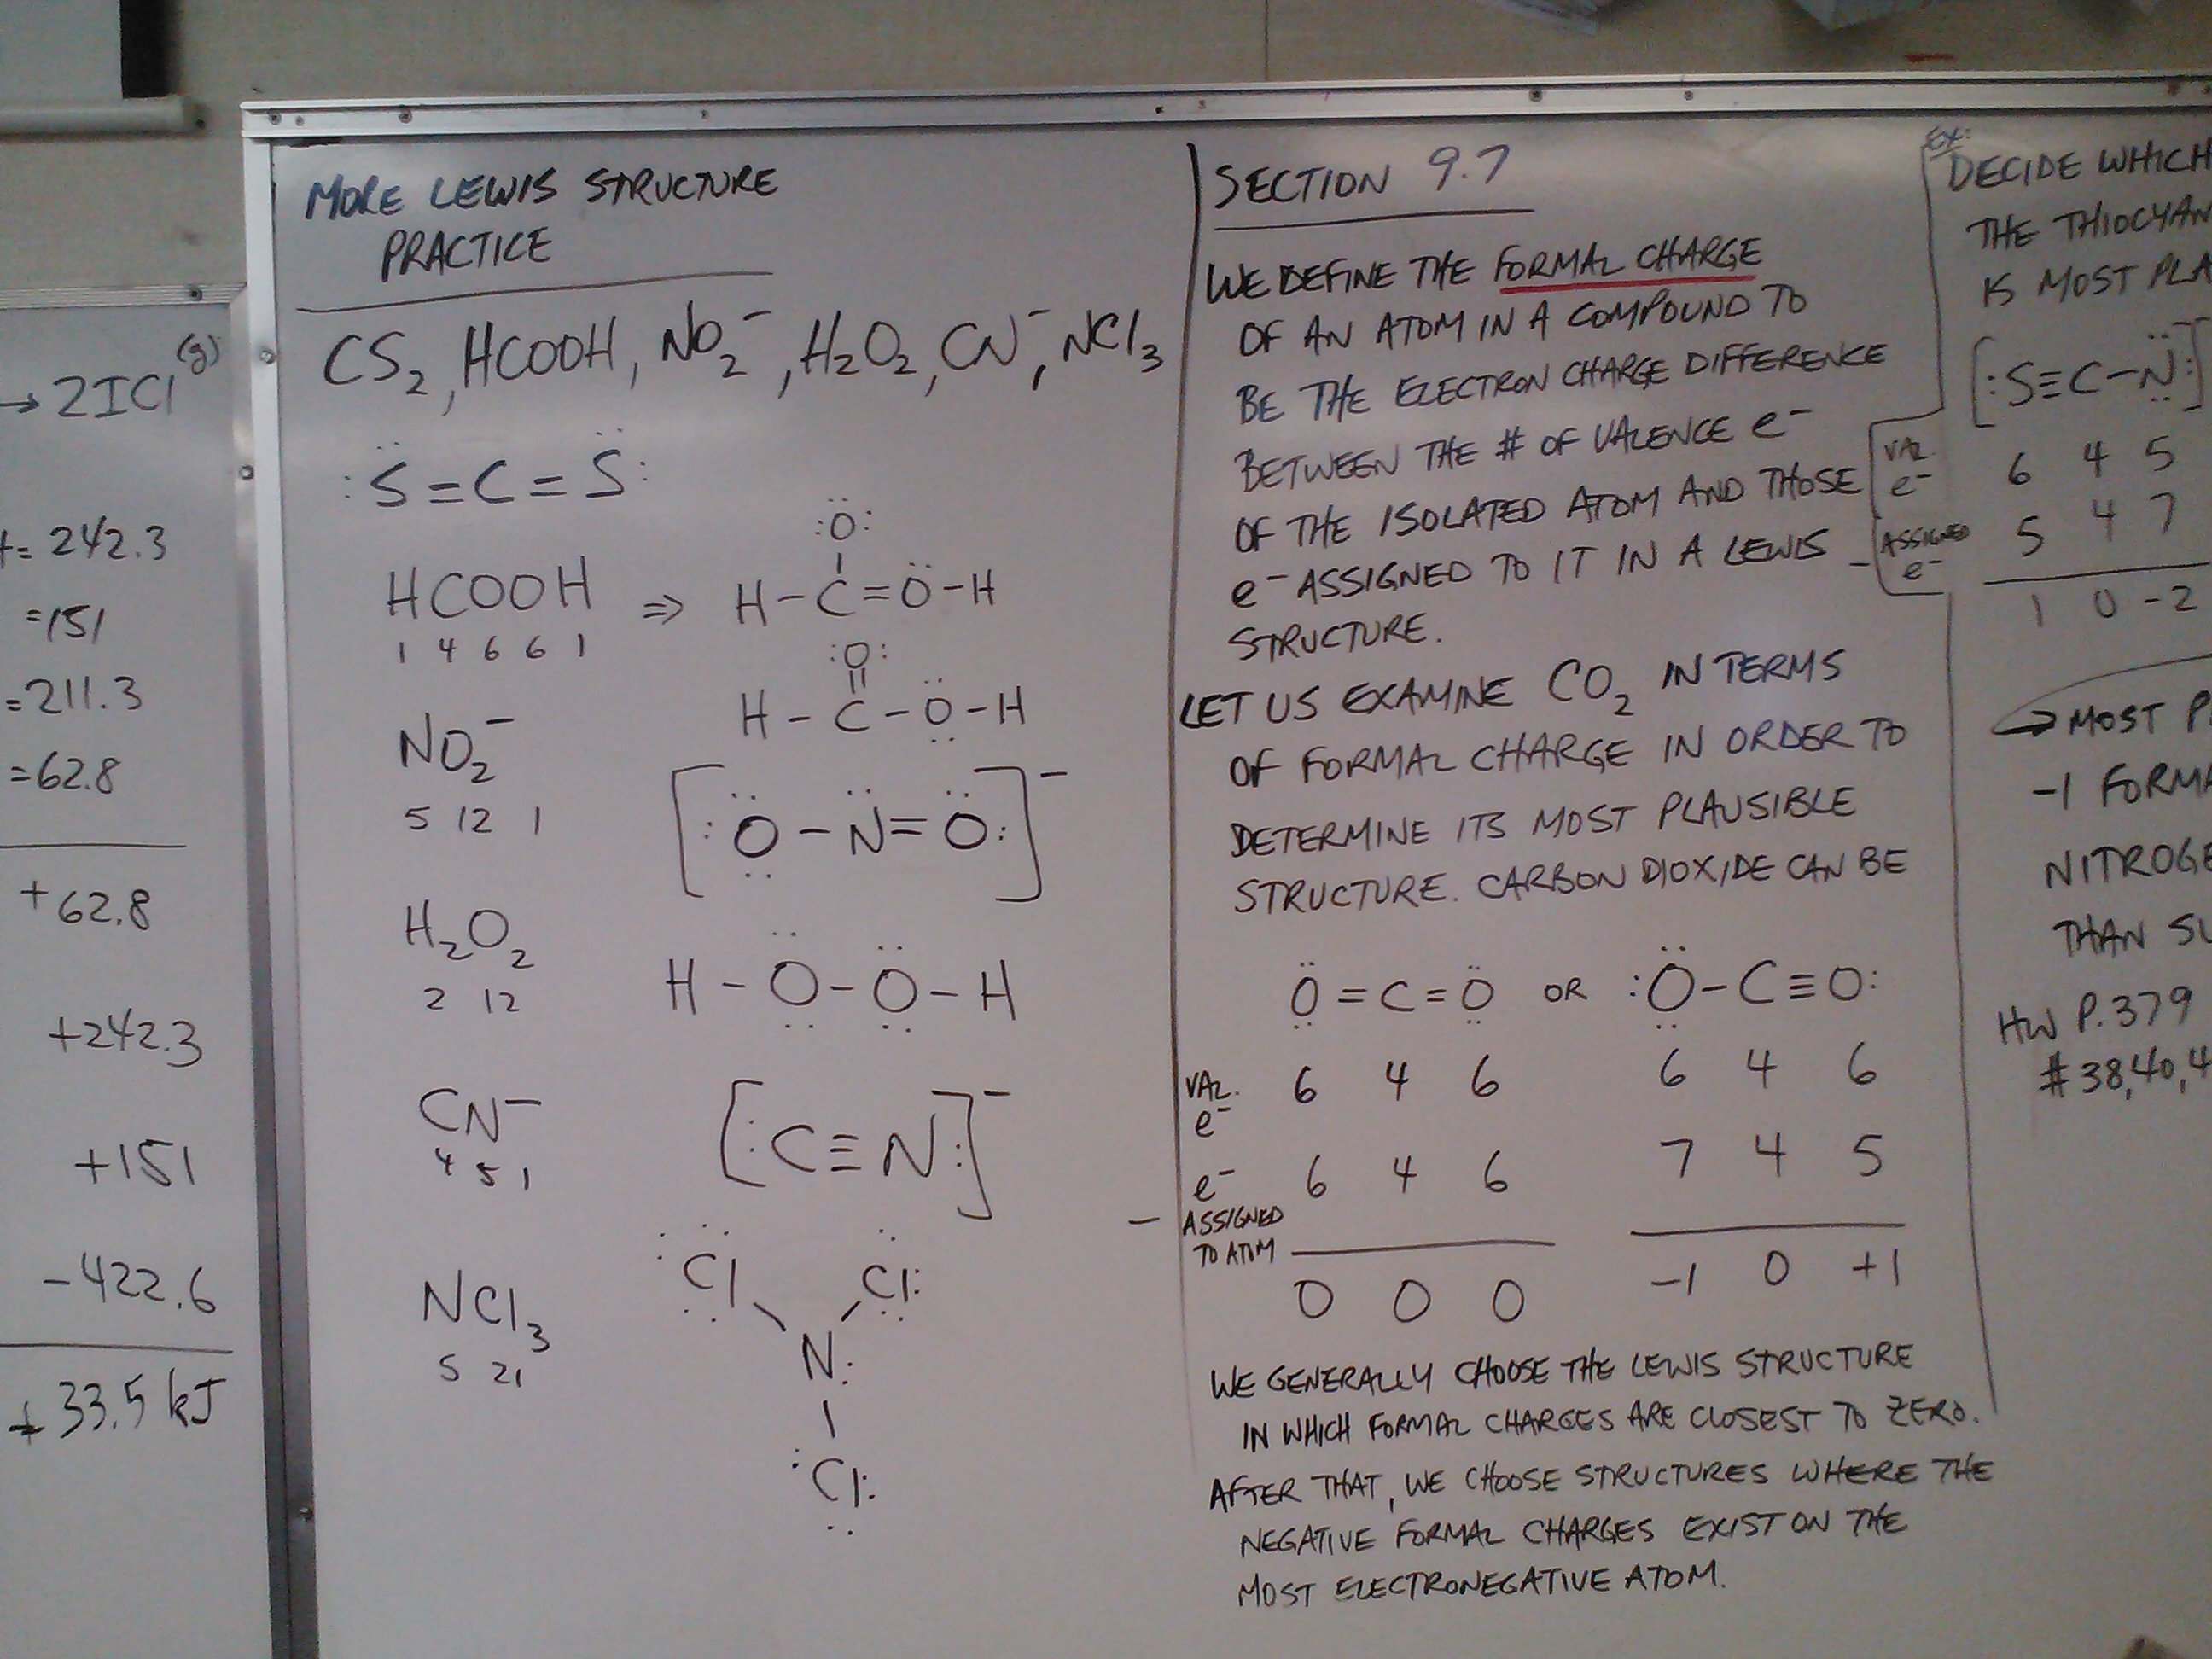 → 2ICl(g)
= 242.3
=151
=211.3
=62.8
+62.8
+242.3
+151
-422.6
+33.5 kJ
MORE LEWIS STRUCTURE
PRACTICE
CS₂, HCOOH, NO₂⁻, H₂O₂, CN⁻, NCl₃
:S=C=S:
HCOOH ⇒ H-C=O-H
:O:
1 4 6 6 1
:O:
H-C-O-H
NO₂⁻
5 12 1
[:O-N=O:]⁻
H₂O₂
2 12
H-O-O-H
CN⁻
4 5 1
[:C≡N:]⁻
NCl₃
5 21
:Cl Cl:
N:
:Cl:
SECTION 9.7
WE DEFINE THE FORMAL CHARGE
OF AN ATOM IN A COMPOUND TO
BE THE ELECTRON CHARGE DIFFERENCE
BETWEEN THE # OF VALENCE e⁻
OF THE ISOLATED ATOM AND THOSE
e⁻ ASSIGNED TO IT IN A LEWIS
STRUCTURE.
LET US EXAMINE CO₂ IN TERMS
OF FORMAL CHARGE IN ORDER TO
DETERMINE ITS MOST PLAUSIBLE
STRUCTURE. CARBON DIOXIDE CAN BE
Ö=C=Ö OR :Ö-C≡O:
VAL. e⁻ 6 4 6 6 4 6
- e⁻ ASSIGNED TO ATOM 6 4 6 7 4 5
0 0 0 -1 0 +1
WE GENERALLY CHOOSE THE LEWIS STRUCTURE
IN WHICH FORMAL CHARGES ARE CLOSEST TO ZERO.
AFTER THAT, WE CHOOSE STRUCTURES WHERE THE
NEGATIVE FORMAL CHARGES EXIST ON THE
MOST ELECTRONEGATIVE ATOM.
EX:
DECIDE WHICH
THE THIOCYAN
IS MOST PLA
[:S≡C-N̈:]
VAL. e⁻ 6 4 5
- ASSIGNED e⁻ 5 4 7
1 0 -2
→ MOST P
-1 FORMA
NITROGE
THAN SU
HW P.379
#38,40,4